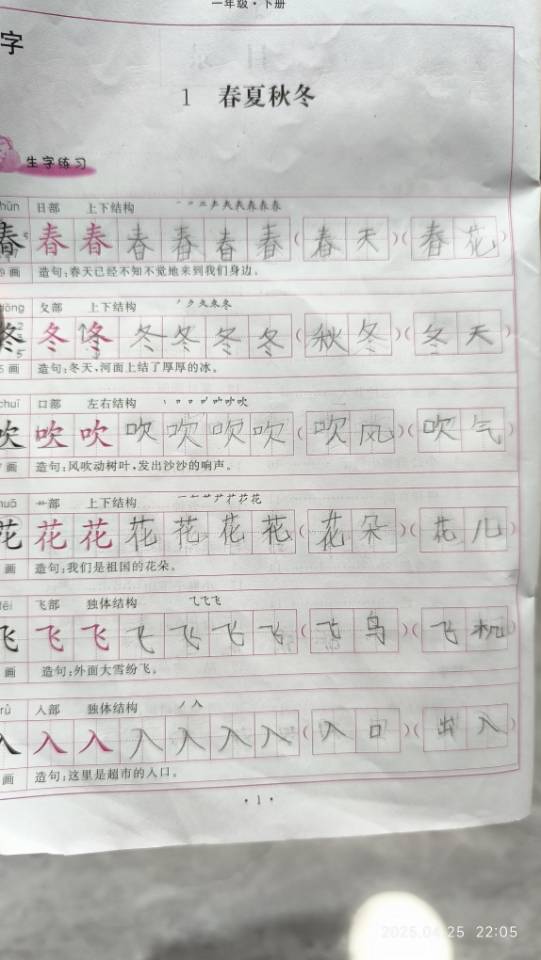 一年级·下册
字
1 春夏秋冬
生字练习
hūn 日部 上下结构
春 春 春 春 春 春 春 (春天)(春花)
9画 造句:春天已经不知不觉地来到我们身边。
dōng 夂部 上下结构
冬 冬 冬 冬 冬 冬 冬 (秋冬)(冬天)
5画 造句:冬天,河面上结了厚厚的冰。
chuī 口部 左右结构
吹 吹 吹 吹 吹 吹 吹 (吹风)(吹气)
画 造句:风吹动树叶,发出沙沙的响声。
huā 艹部 上下结构
花 花 花 花 花 花 花 (花朵)(花儿)
画 造句:我们是祖国的花朵。
fēi 飞部 独体结构
飞 飞 飞 飞 飞 飞 飞 (飞鸟)(飞机)
画 造句:外面大雪纷飞。
rù 人部 独体结构
入 入 入 入 入 入 入 (入口)(出入)
画 造句:这里是超市的入口。
·1·
2025.04.25 22:05